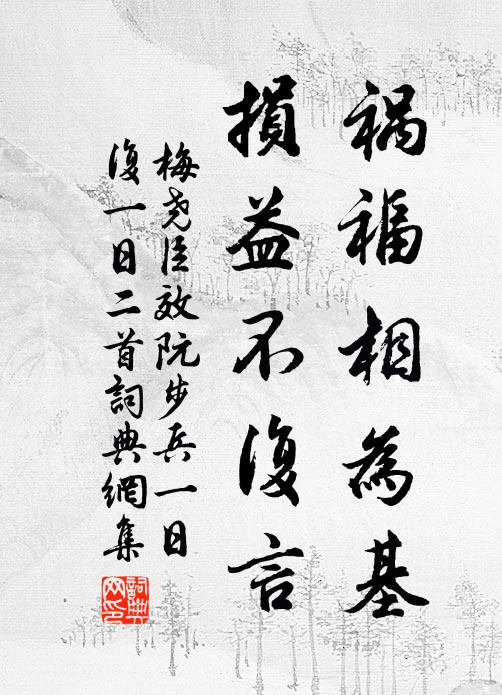 禍福相為基
損益不復言
梅堯臣效阮步兵一日
復一日二首詞典網集
詞典
网印